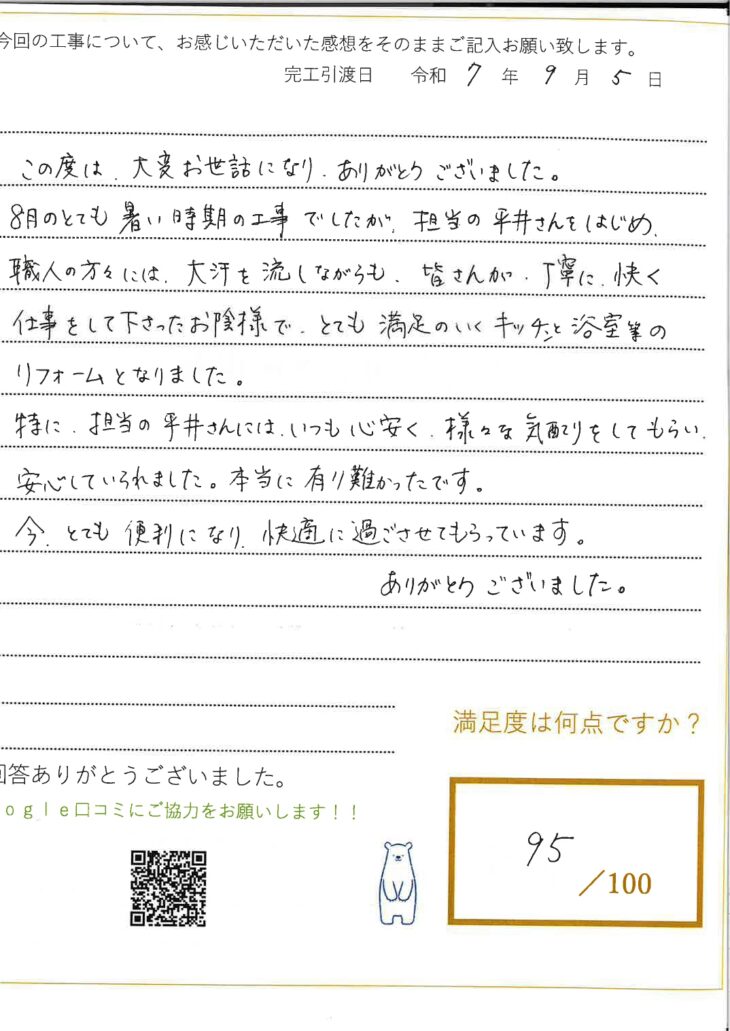 今回の工事について、お感じいただいた感想をそのままご記入お願い致します。
完工引渡日 令和 7 年 9 月 5 日
この度は、大変お世話になり、ありがとうございました。
8月のとても暑い時期の工事でしたが、担当の平井さんをはじめ、
職人の方々には、大汗を流しながらも、皆さんが、丁寧に、快く
仕事をして下さったお陰様で、とても満足のいくキッチンと浴室等の
リフォームとなりました。
特に、担当の平井さんには、いつも心安く、様々な気配りをしてもらい、
安心していられました。本当に有り難かったです。
今、とても便利になり、快適に過ごさせてもらっています。
ありがとうございました。
満足度は何点ですか？
回答ありがとうございました。
ｏｇｌｅ口コミにご協力をお願いします！！
95
／100